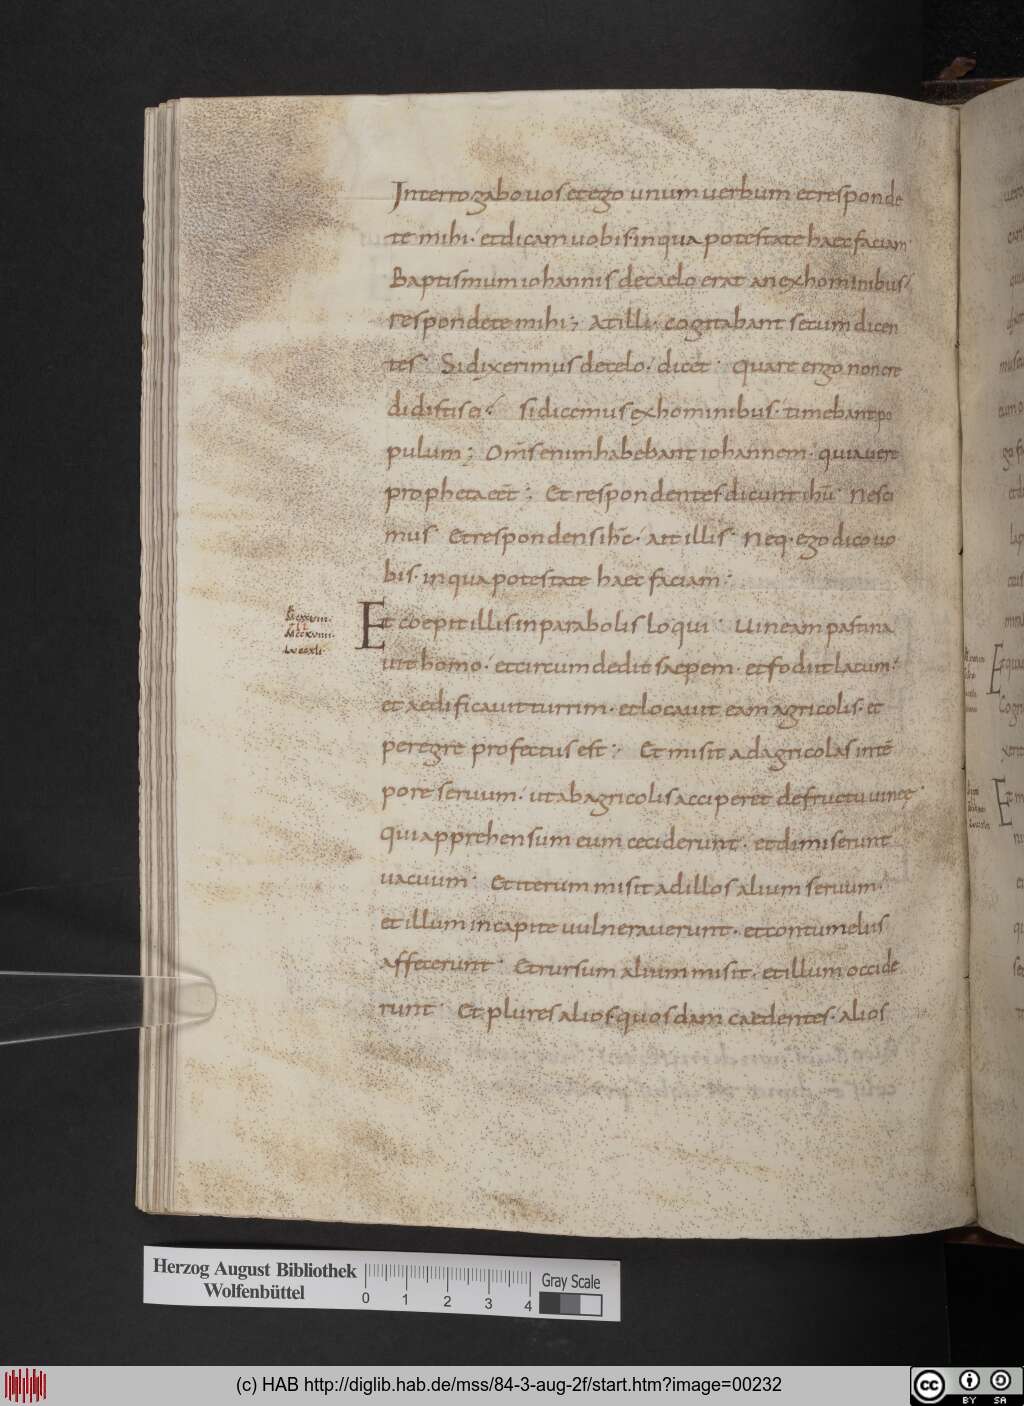 Interrogabo uos et ego unum uerbum et responde
te mihi. et dicam uobis. in qua potestate haec faciam.
Baptismum iohannis de caelo erat an ex hominibus.
respondete mihi; At illi. cogitabant secum dicen
tes. Si dixerimus de celo. dicet. Quare ergo non cre
didistis ei. Si dicemus ex hominibus. timebant po
pulum; Om̄s enim habebant iohannem. quia uere
propheta eēt; Et respondentes. dicunt ihū. Nesci
mus. Et respondens ihc̄. ait illis. Neq. ego dico uo
bis. in qua potestate haec faciam.
Et coepit illis in parabolis loqui. Uineam pastina
uit homo. et circumdedit saepem. et fodiit lacum.
et aedificauit turrim. et locauit eam agricolis. et
peregre profectus est; Et misit ad agricolas in tē
pore seruum. ut ab agricolis acciperet de fructu uineę.
Qui apprehensum eum ceciderunt. et dimiserunt
uacuum. Et iterum misit ad illos alium seruum.
et illum in capite uulnerauerunt. et contumeliis
affecerunt. Et rursum alium misit. et illum occide
runt. Et plures alios. quosdam caedentes. alios
Herzog August Bibliothek
Wolfenbüttel
0 1 2 3 4
Gray Scale
(c) HAB http://diglib.hab.de/mss/84-3-aug-2f/start.htm?image=00232
cc BY SA